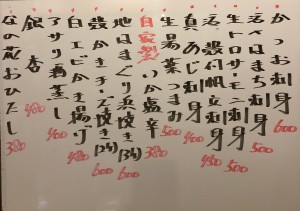 かつお刺身 600
活〆はまち刺身 500
生トロサーモン刺身 500
活殻付帆立刺身 480
真あじ刺身 400
生湯葉つまみ 500
自家製いか塩辛 380
地はまぐり浜焼き(3ケ) 600
殻かき焼き(2ケ) 600
白エビから揚げ 480
アサリ酒蒸し 400
銀杏 480
なの花おひたし 380